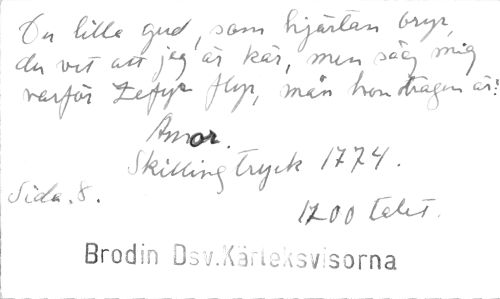 Du lilla gud, som hjärtan bryr,
du vet att jag är kär, men säg mig
varför Zefyr flyr, mån hon tragen är?
Amor.
Skillingtryck 1774.
Sida. 8.
1700 talet.
Brodin Dsv. Kärleksvisorna